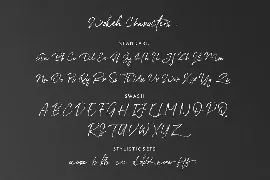 Welsh Characters
STANDARD
Aa Bb Cc Dd Ee Ff Gg Hh Ii Jj Kk Ll Mm
Nn Oo Pp Qq Rr Ss Tt Uu Vv Ww Xx Yy Zz
SWASH
A B C D E F G H I J K L M N O P Q
R S T U V W X Y Z
STYLISTIC SETS